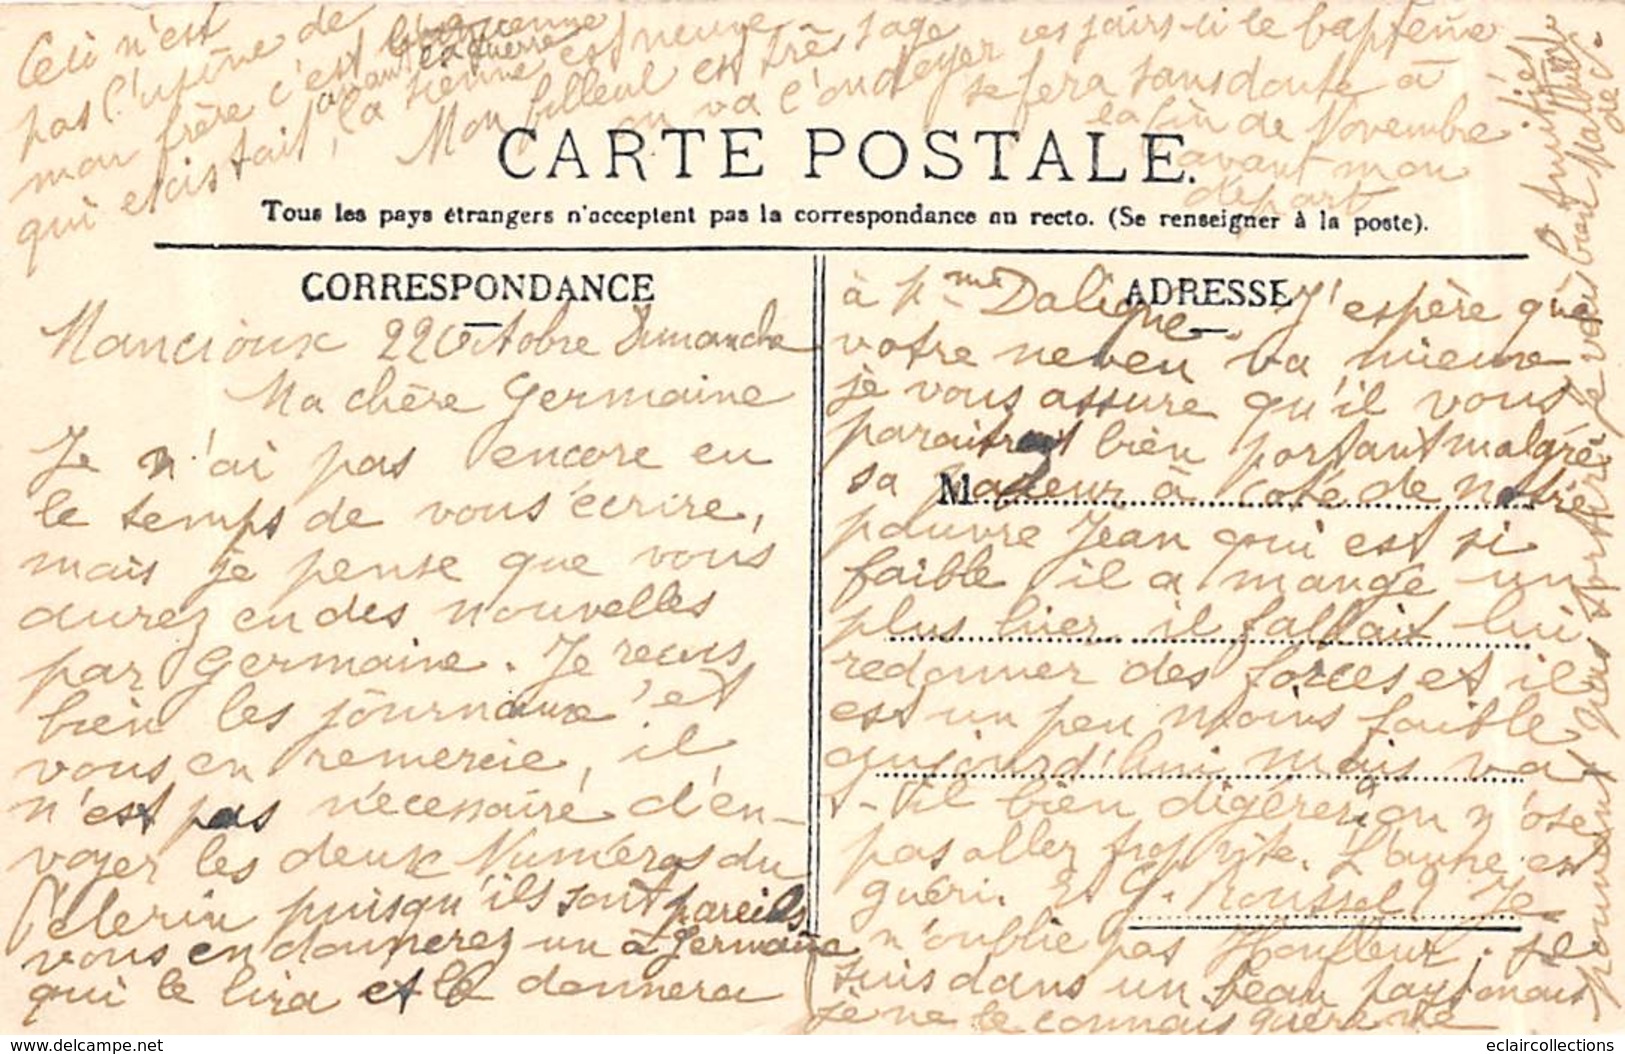 Ceci n'est
pas l'usine de
mon frère c'est l'ancienne
qui existait avant la guerre
la sienne est neuve
Mon filleul est très sage
on va l'ondoyer ces jours-ci le baptême
se fera sans doute à
la fin de Novembre
avant mon
départ
CARTE POSTALE.
Tous les pays étrangers n'acceptent pas la correspondance au recto. (Se renseigner à la poste).
CORRESPONDANCE
Mancioux 22 Octobre Dimanche
Ma chère Germaine
Je n'ai pas encore eu
le temps de vous écrire,
mais je pense que vous
aurez eu des nouvelles
par Germaine. Je reçus
bien les journaux et
vous en remercie, il
n'est pas nécessaire d'en-
voyer les deux Numéros du
Pélerin puisqu'ils sont pareils
vous en donnerez un à Germaine
qui le lira et le donnera
ADRESSE
M
à Mme Daligne. J'espère que
votre neveu va mieux
je vous assure qu'il vous
paraitrait bien portant malgré
sa paleur à côté de notre
pauvre Jean qui est si
faible, il a mangé un
plus hier, il fallait lui
redonner des forces et il
est un peu moins faible
aujourd'hui mais va
t-il bien digérer, on n'ose
pas aller trop vite. L'autre est
guéri. Et G. Roussel? Je
n'oublie pas Honfleur; je
suis dans un beau pays mais
je ne le connais guère ne
pouvant pas sortir. Je vais bien Mathilde
Amitiés
de C.
delcampe.net
eclaircollections